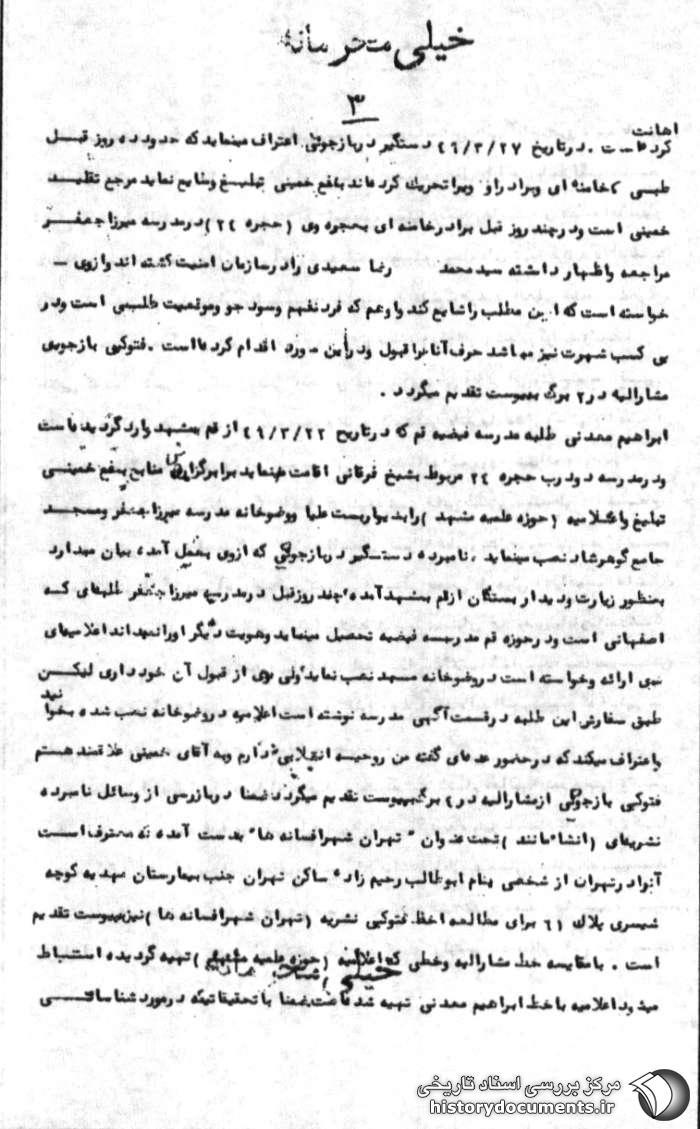 خیلی محرمانه
۳
اهانت
کرده است . در تاریخ ۴۹/۳/۲۷ دستگیر در بازجوئی اعتراف مینماید که حدود ده روز قبل
طبسی خامنه ای وبرادر او ویرا تحریک کرده اند بنفع خمینی تبلیغ وشایع نماید مرجع تقلید
خمینی است ودر چند روز قبل برادر خامنه ای بحجره وی (حجره ۲۴) در مدرسه میرزا جعفر
مراجعه واظهار داشته سید محمد رضا سعیدی را در سازمان امنیت کشته اند و از وی -
خواسته است که این مطلب را شایع کند واو هم که فرد نفهم وسودجو وموقعیت طلبی است ودر
پی کسب شهرت نیز میباشد حرف آنانرا قبول ودر این مورد اقدام کرده است . فتوکپی بازجوئی
مشارالیه در ۲ برگ بپیوست تقدیم میگردد .
ابراهیم معدنی طلبه مدرسه فیضیه قم که در تاریخ ۴۹/۳/۲۲ از قم بمشهد وارد گردیده است
ودر مدرسه دودرب حجره ۲۴ مربوط بشیخ فرقانی اقامت مینماید برا برگزاری منابع بنفع خمینی
تبلیغ واعلامیه (حوزه علمیه مشهد) را بدیوار ووضوخانه مدرسه میرزا جعفر ومسجد
جامع گوهرشاد نصب مینماید . نامبرده دستگیر در بازجوئی که ازوی بعمل آمده بیان میدارد
بمنظور زیارت ودیدار بستگان از قم بمشهد آمده چند روز قبل در مدرسه میرزا جعفر طلبه ای که
اصفهانی است ودر حوزه قم مدرسه فیضیه تحصیل مینماید وهویت دیگر اورا نمیداند اعلامیه ای
بوی ارائه وخواسته است در وضوخانه مسجد نصب نماید ولی وی از قبول آن خودداری لیکن
طبق سفارش این طلبه در قسمت آگهی مدرسه نوشته است اعلامیه در وضوخانه نصب شده بخوانید
واعتراف میکند که در حضور عده ای گفته من روحیه انقلابی دارم وبه آقای خمینی علاقمند هستم
فتوکپی بازجوئی از مشارالیه در برگ بپیوست تقدیم میگردد ضمنا در بازرسی از وسائل نامبرده
نشریه ای (انشاء مانند) تحت عنوان " تهران شهر افسانه ها" بدست آمده که معترف است
آنرا در تهران از شخصی بنام ابوطالب رحیم زاده ساکن تهران جنب بیمارستان مهدیه کوچه
پلاک ۶۱ برای مطالعه اخذ فتوکپی نشریه (تهران شهر افسانه ها) نیز بپیوست تقدیم
است . بامقایسه خط مشارالیه وخطی که اعلامیه (حوزه علمیه مشهد) تهیه گردیده استنباط
میشود اعلامیه با خط ابراهیم معدنی تهیه شده است ضمنا با تحقیقاتیکه در مورد شناسائی
خیلی محرمانه
مرکز بررسی اسناد تاریخی
historydocuments.ir